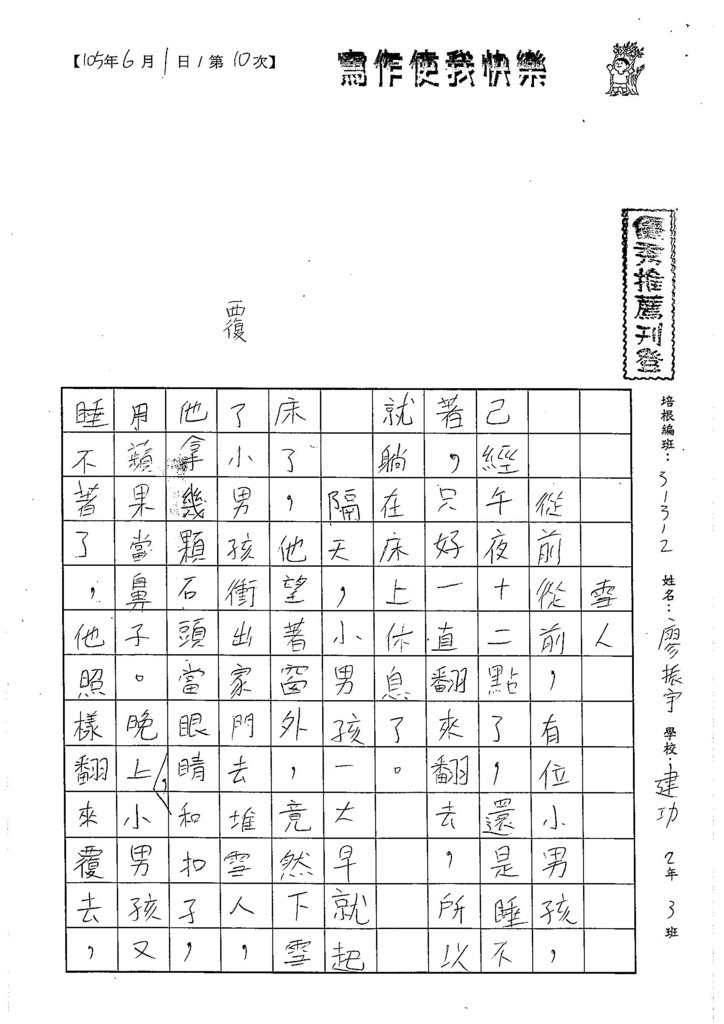 【105年6月1日/第10次】
寫作使我快樂
優秀推薦刊登
培根編班：31312 姓名：廖振宇 學校：建功 2年3班
雪人
從前從前，有位小男孩，
己經午夜十二點了，還是睡不
著，只好一直翻來翻去，所以
就躺在床上休息了。
隔天，小男孩一大早就起
床了，他望著窗外，竟然下雪
了小男孩衝出家門去堆雪人，
他拿幾顆石頭當眼睛和扣子，
用蘋果當鼻子。晚上，小男孩又
睡不著了，他照樣翻來覆去，
覆